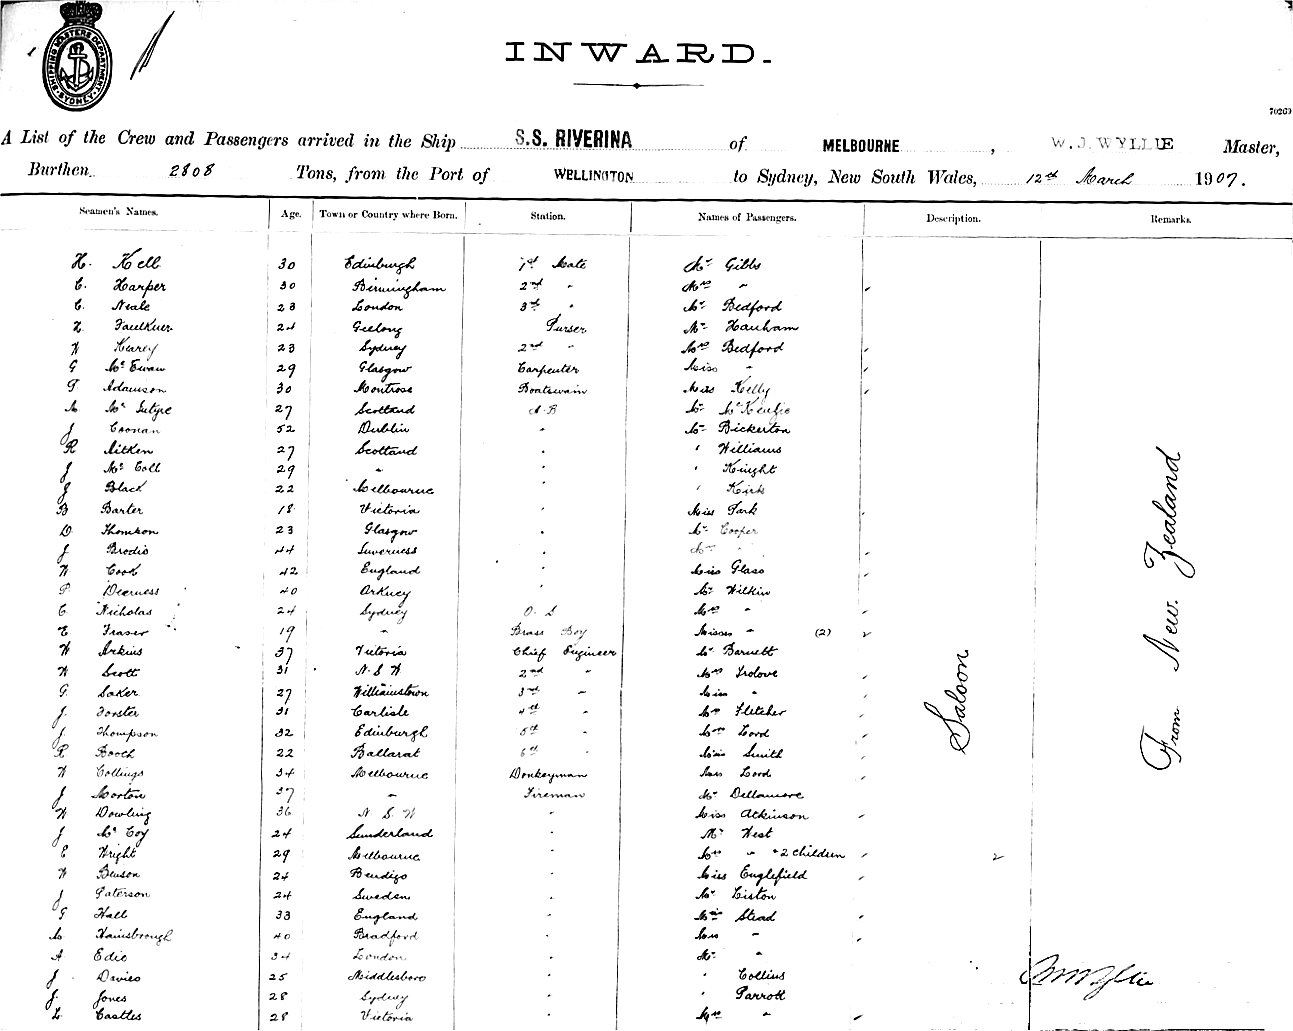 SHIPPING MASTERS DEPARTMENT SYDNEY
INWARD.
70269
A List of the Crew and Passengers arrived in the Ship S.S. RIVERINA of MELBOURNE, W. J. WYLLIE Master,
Burthen 2808 Tons, from the Port of WELLINGTON to Sydney, New South Wales, 12th March 1907.
Seamen's Names. Age. Town or Country where Born. Station. Names of Passengers. Description. Remarks.
H. Kell 30 Edinburgh 1st Mate Mr Gibbs
C. Harper 30 Birmingham 2nd " Mrs "
C. Neale 23 London 3rd " Mr Bedford
Faulkner 24 Geelong Purser Mr Hanham
W Kearey 23 Sydney 2nd " Mrs Bedford
G McEwan 29 Glasgow Carpenter Miss "
Adamson 30 Montrose Boatswain Miss Kelly
McIntyre 27 Scotland A.B Mr McKenzie
J Coonan 52 Dublin " Mr Bickerton
R Aitken 27 Scotland " " Williams
J McColl 29 " " " Knight
J Black 22 Melbourne " " Kirk
B Barter 18 Victoria " Miss Park
D. Thomson 23 Glasgow " Mr Cooper
J Brodie 44 Inverness "
W Cook 42 England " Miss Glass
P. Deerness 40 Orkney " Mr Wilkin
C Nicholas 24 Sydney O.S Mrs "
E Fraser 19 " Brass Boy Misses " (2)
W Arkins 37 Victoria Chief Engineer Mr Barnett
W Scott 31 N.S.W 2nd " Mrs Trolove
G. Saker 27 Williamstown 3rd " Miss "
J. Forster 31 Carlisle 4th " Mrs Fletcher
J Thompson 32 Edinburgh 5th " Mrs Lord
R Booth 22 Ballarat 6th " Miss Smith
W Collings 34 Melbourne Donkeyman Miss Lord
J Morton 37 " Fireman Mr Dellamore
W Dowling 36 N S W " Miss Atkinson
J McCoy 24 Sunderland " Mr West
E Wright 29 Melbourne " Mrs " + 2 children
W Benson 24 Bendigo " Miss Englefield
J Paterson 24 Sweden " Mr Liston
G Hall 33 England " Stead
Hainsbrough 40 Bradford " Miss "
A Edie 34 London " Mr "
J. Davies 25 Middlesboro " " Collins
J. Jones 28 Sydney " " Parrott
L. Castles 28 Victoria " Mrs "
Saloon
From New Zealand